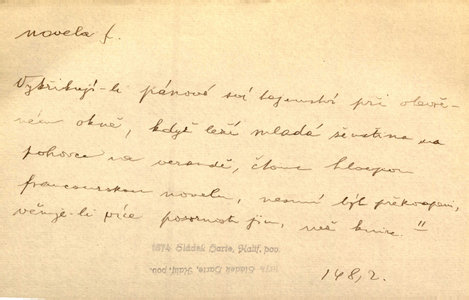 novela f.
Vykřikují-li pánové svá tajemství při otevře-
ném okně, když leží mladá ženština na
pohovce na verandě, čtouc hloupou
francouzskou novelu, nesmí být překvapeni,
věnuje-li více pozornosti jim, než knize."
1874 Sládek Harte, Kalif. pov.
1874 Sládek Harte, Kalif. pov.
148, 2.